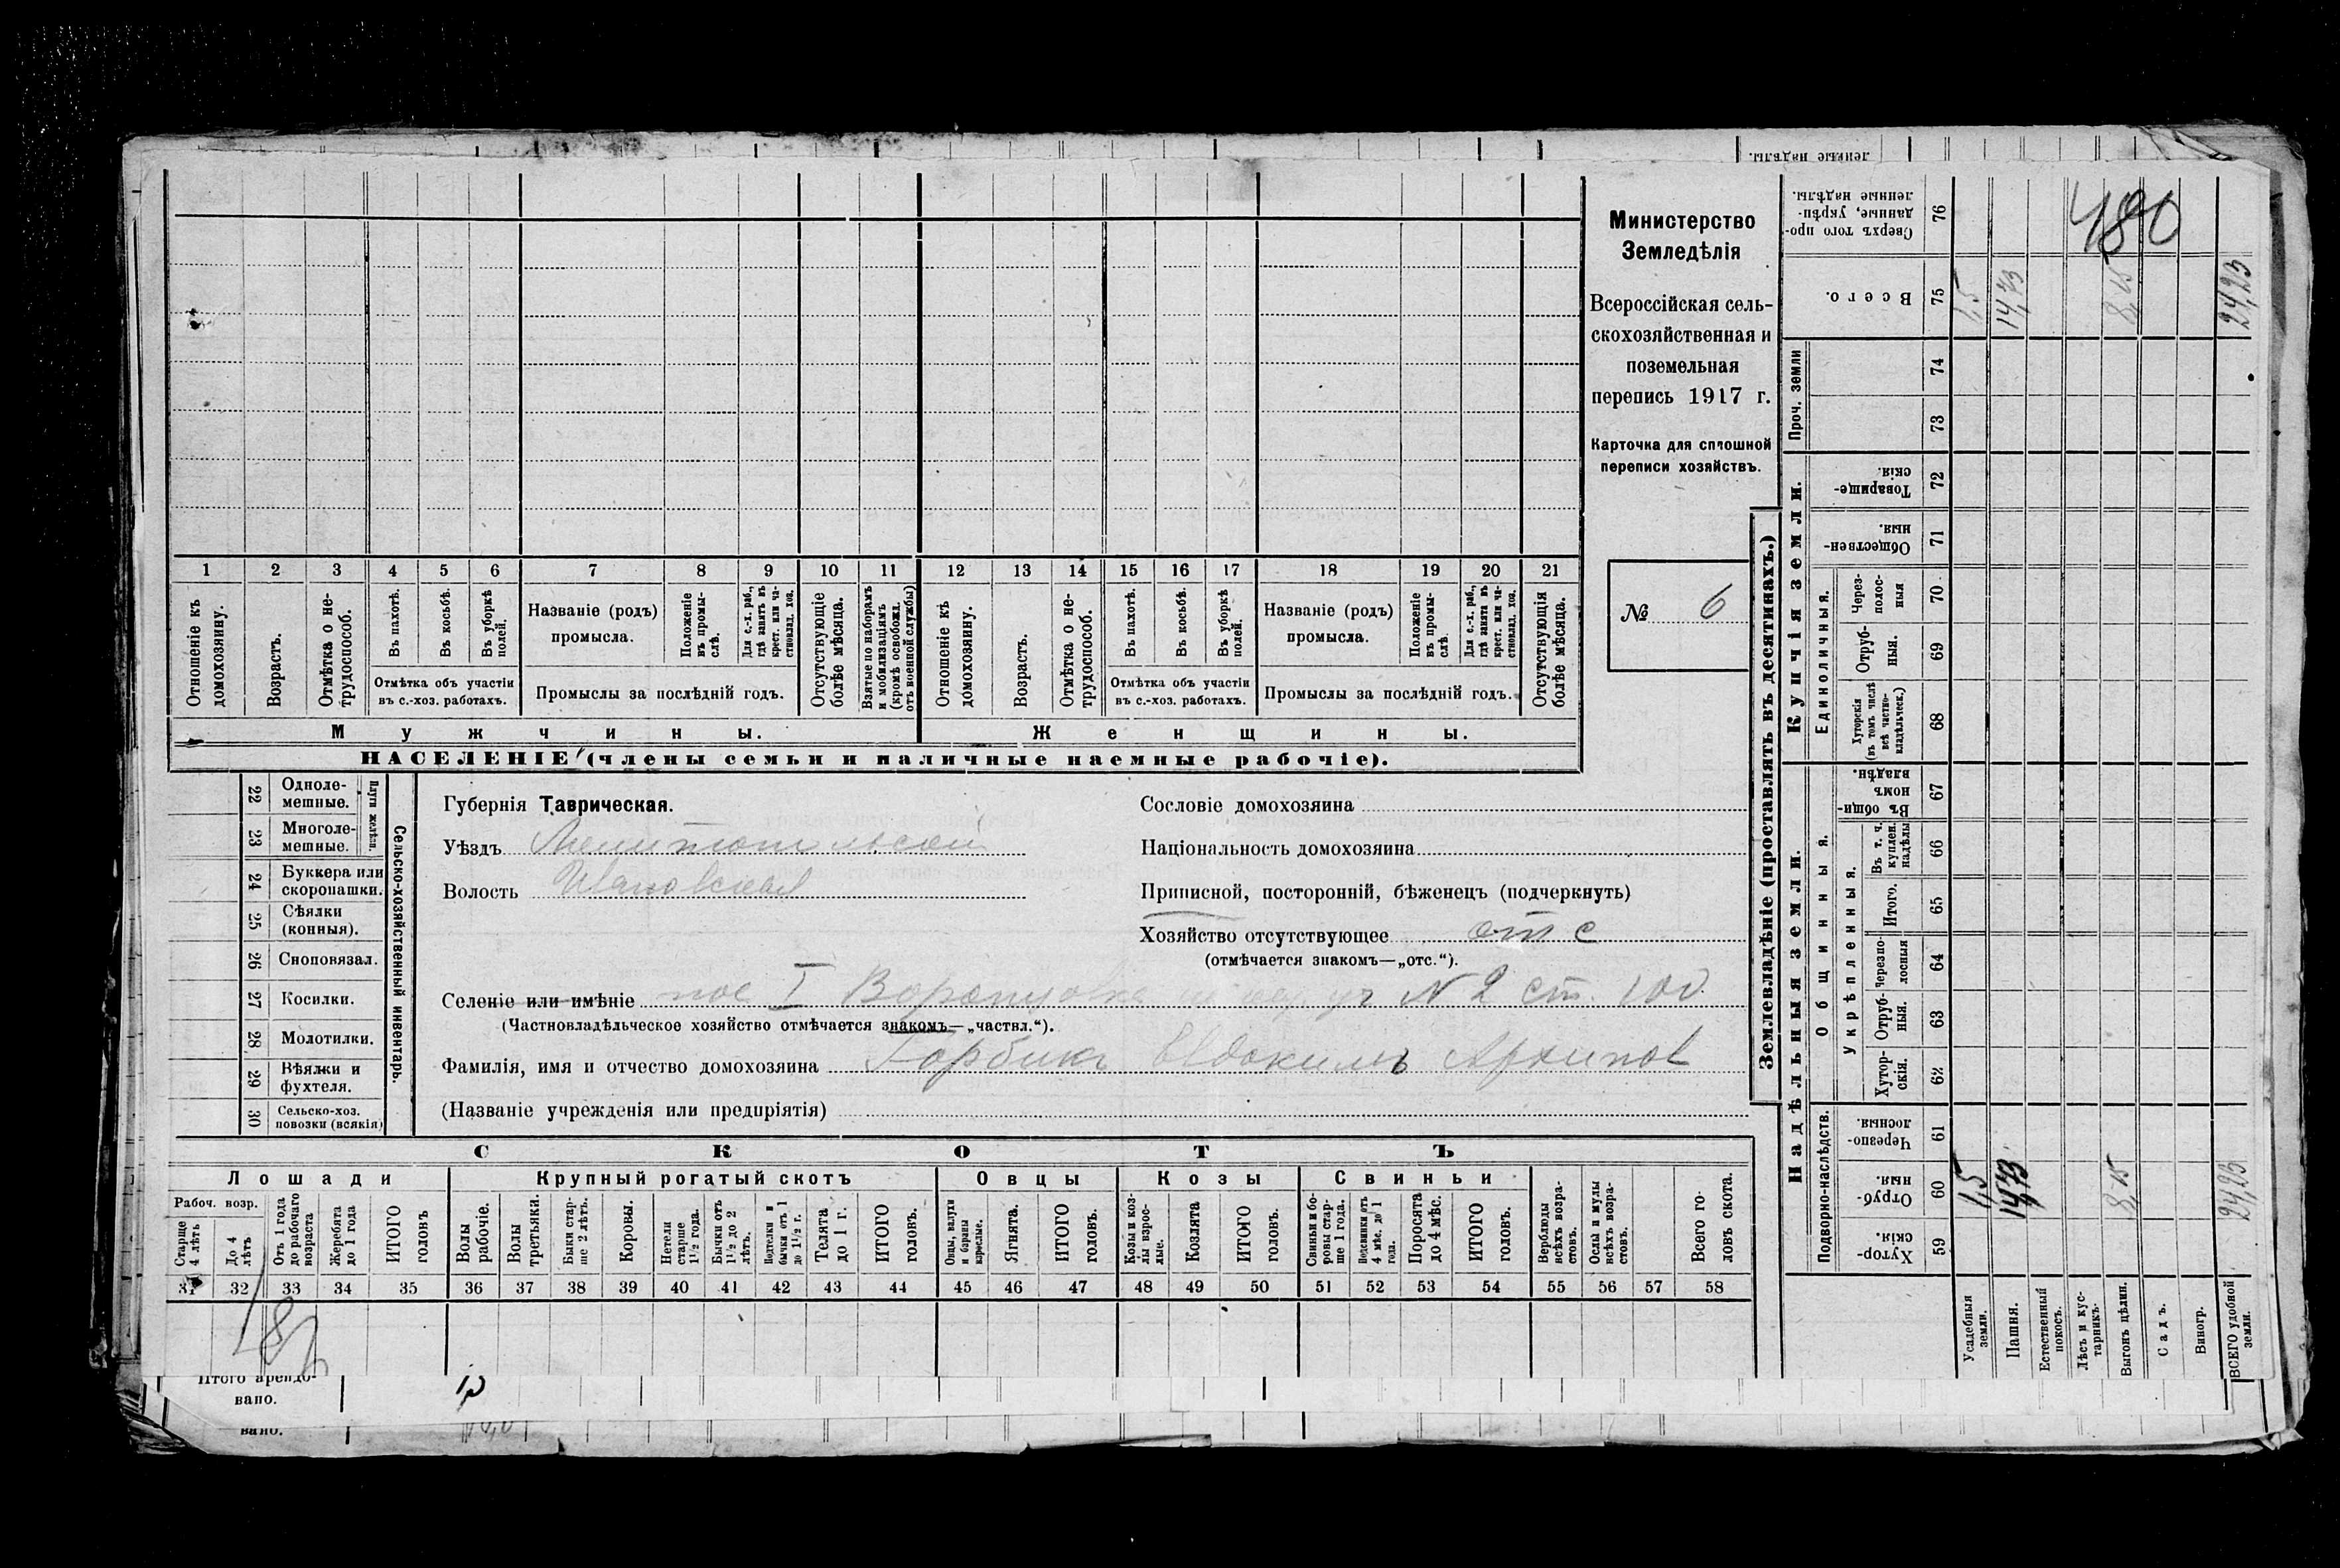 ленные надѣлы.
1 2 3 4 5 6 7 8 9 10 11 12 13 14 15 16 17 18 19 20 21
Отношеніе къ домохозяину.
Возрастъ.
Отмѣтка о нетрудоспособ.
Въ пахотѣ.
Въ косьбѣ.
Въ уборкѣ полей.
Отмѣтка объ участіи
въ с.-хоз. работахъ.
Названіе (родъ)
промысла.
Положеніе въ промыслѣ.
Для с.-х. раб., гдѣ занятъ въ крест. или частновлад. хоз.
Промыслы за послѣдній годъ.
Отсутствующіе болѣе мѣсяца.
Взятые по наборамъ и мобилизаціямъ (кромѣ освобожд. отъ военной службы)
Отношеніе къ домохозяину.
Возрастъ.
Отмѣтка о нетрудоспособ.
Въ пахотѣ.
Въ косьбѣ.
Въ уборкѣ полей.
Отмѣтка объ участіи
въ с.-хоз. работахъ.
Названіе (родъ)
промысла.
Положеніе въ промыслѣ.
Для с.-х. раб., гдѣ занятъ въ крест. или частновлад. хоз.
Промыслы за послѣдній годъ.
Отсутствующія болѣе мѣсяца.
Мужчины.
Женщины.
НАСЕЛЕНІЕ (члены семьи и наличные наемные рабочіе).
Министерство
Земледѣлія
Всероссійская сель-
скохозяйственная и
поземельная
перепись 1917 г.
Карточка для сплошной
переписи хозяйствъ.
№ 6
22 Одноле-
мешные.
23 Многоле-
мешные.
Плуги желѣзн.
24 Буккера или
скоропашки.
25 Сѣялки
(конныя).
26 Сноповязал.
27 Косилки.
28 Молотилки.
29 Вѣялки и
фухтеля.
30 Сельско-хоз.
повозки (всякія)
Сельско-хозяйственный инвентарь.
Губернія Таврическая.
Уѣздъ Мелитопольскій
Волость Ивановская
Сословіе домохозяина
Національность домохозяина
Приписной, посторонній, бѣженецъ (подчеркнуть)
Хозяйство отсутствующее отс
(отмѣчается знакомъ—„отс.“).
Селеніе или имѣніе пос I № 2 ст. 100
(Частновладѣльческое хозяйство отмѣчается знакомъ—„частвл.“).
Фамилія, имя и отчество домохозяина Горбикъ Евдокимъ Архипов
(Названіе учрежденія или предпріятія)
СКОТЪ
Лошади Крупный рогатый скотъ Овцы Козы Свиньи
Рабоч. возр.
Старше 4 лѣтъ
До 4 лѣтъ
Отъ 1 года до рабочаго возраста
Жеребята до 1 года
ИТОГО головъ
Волы рабочіе.
Волы третьяки.
Быки старше 2 лѣтъ.
Коровы.
Нетели старше 1½ года.
Бычки отъ 1½ до 2 лѣтъ.
Подтелки и бычки отъ 1 до 1½ г.
Телята до 1 г.
ИТОГО головъ.
Овцы, валухи и бараны взрослые.
Ягнята.
ИТОГО головъ.
Козы и козлы взрослые.
Козлята
ИТОГО головъ.
Свиньи и боровы старше 1 года.
Подсвинки отъ 4 мѣс. до 1 года.
Поросята до 4 мѣс.
ИТОГО головъ.
Верблюды всѣхъ возрастовъ.
Ослы и мулы всѣхъ возрастовъ.
Всего головъ скота.
31 32 33 34 35 36 37 38 39 40 41 42 43 44 45 46 47 48 49 50 51 52 53 54 55 56 57 58
Итого арендо-
вано.
вано.
Землевладѣніе (проставлять въ десятинахъ.)
Надѣльныя земли.
Купчія земли.
Проч. земли
Подворно-наслѣдств.
Общинныя.
Укрѣпленныя.
Единоличныя.
76 Сверхъ того проданные, укрѣпленные надѣлы. 480
75 Всего. 1,5 14,73 8, 24,23
74
73
72 Товарищескія.
71 Общественныя.
70 Черезполосныя
69 Отрубныя.
68 Хуторскія (въ томъ числѣ всѣ частновладѣльческ.)
67 Въ общинномъ владѣн.
66 Въ т. ч. куплен. надѣлы
65 Итого.
64 Черезполосныя
63 Отрубныя.
62 Хуторскія.
61 Черезполосныя.
60 Отрубныя. 1,5 14,73 8, 24,23
59 Хуторскія.
Усадебныя земли.
Пашня.
Естественный покосъ.
Лѣсъ и кустарникъ.
Выгонъ цѣлин.
Садъ.
Виногр.
ВСЕГО удобной земли.